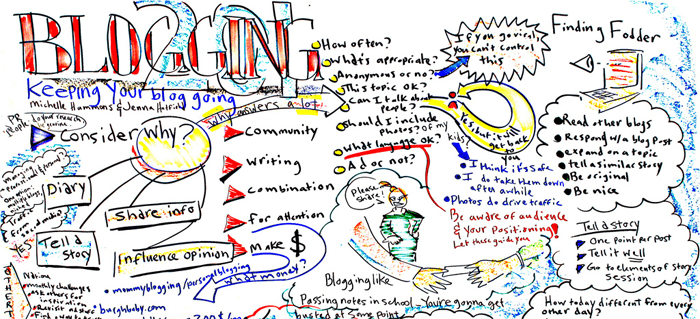 BLOGGING
201
Keeping Your blog going
Michelle Hammons & Jenna
PR
people
Do your research
Consider Why?
Why answers a lot.
Diary
Share info
Tell a
story
Influence opinion
Community
Writing
combination
for attention
Make $
what money?
• mommyblogging/personal blogging
• burghbaby.com
YES
monthly challenges
ask others for
How often?
What's appropriate?
Anonymous or no?
This topic ok?
Can I talk about
people?
Should I include
photos? of my
kids?
What language ok?
Ad or not?
If you go viral
you can't control
this
Yes, but it will
get back to
you
• I think it's safe
• I do take them down
after awhile
• Photos do drive traffic
Be aware of audience
& your Positioning!
Let these guide you
Please
share!
Blogging like
Passing notes in school - You're gonna get
busted at some point
Finding Fodder
Read other blogs
Respond w/a blog post
expand on a topic
tell a similar story
Be original
Be nice
Tell a story
One point per post
Tell it well
Go to elements of story
session
How today different from every
other day?